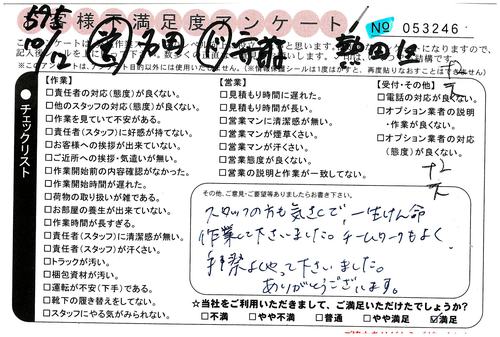 お客様不満足度アンケート
No 053246
10/12 石田
【作業】
□責任者の対応(態度)が良くない。
□他のスタッフの対応(態度)が良くない。
□作業を見ていて不安がある。
□責任者(スタッフ)に好感が持てない。
□お客様への挨拶が出来ていない。
□ご近所への挨拶・気遣いが無い。
□作業開始前の内容確認がなかった。
□作業開始時間が遅れた。
□荷物の取り扱いが雑である。
□お部屋の養生が出来ていない。
□作業時間が長すぎる。
□責任者(スタッフ)に清潔感が無い。
□責任者(スタッフ)が汗くさい。
□トラックが汚い。
□梱包資材が汚い。
□運転が不安(下手)である。
□靴下の履き替えをしてない。
□スタッフにやる気がみられない。
チェックリスト
【営業】
□見積もり時間に遅れた。
□見積もり時間が長い。
□営業マンに清潔感が無い。
□営業マンが煙草くさい。
□営業マンが汗くさい。
□営業態度が良くない。
□営業の説明と作業が一致してない。
【受付・その他】
□電話の対応が良くない。
□オプション業者の説明
・作業が良くない。
□オプション業者の対応
(態度)が良くない。
その他、ご意見・ご要望等ありましたらお書き下さい。
スタッフの方も気さくで、一生けん命
作業して下さいました。チームワークもよく、
手際よくやって下さいました。
ありがとうございます。
☆当社をご利用いただきまして、ご満足いただけたでしょうか?
□不満 □やや不満 □普通 □やや満足 ☑満足